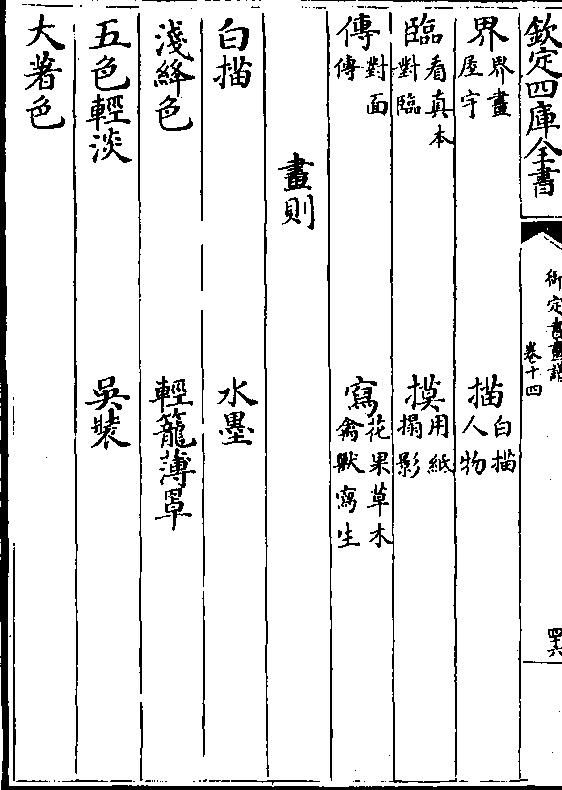 欽定四庫全書
御定書畫譜
卷十四
四十六
界界畫屋宇　描白描人物
臨看真本對臨　摸用紙搨影
傳對面傳　寫花果草木禽獸寫生
畫則
白描　水墨
淺絳色　輕籠薄罩
五色輕淡　吳裝
大著色